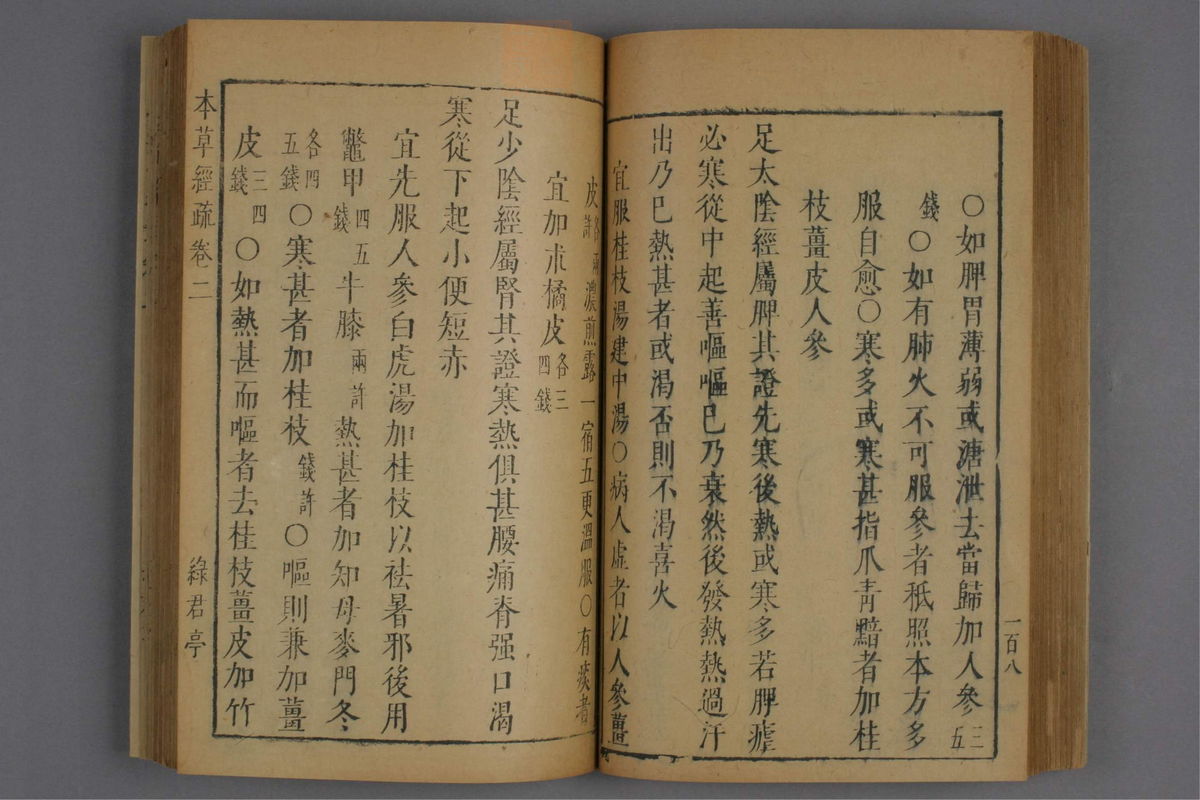 一百八
○如脾胃薄弱或溏泄去當歸加人參三五
錢○如有肺火不可服參者秖照本方多
服自愈○寒多或寒甚指爪青黯者加桂
枝薑皮人參
足太陰經屬脾其證先寒後熱或寒多若脾瘧
必寒從中起善嘔嘔已乃衰然後發熱熱過汗
出乃已熱甚者或渴否則不渴喜火
宜服桂枝湯建中湯○病人虛者以人參薑
皮各兩許濃煎露一宿五更溫服○有痰者
宜加朮橘皮各三四錢
足少陰經屬腎其證寒熱俱甚腰痛脊强口渴
寒從下起小便短赤
宜先服人參白虎湯加桂枝以祛暑邪後用
鼈甲四五錢牛膝兩許熱甚者加知母麥門冬
各四五錢○寒甚者加桂枝錢許○嘔則兼加薑
皮三四錢○如熱甚而嘔者去桂枝薑皮加竹
本草經疏 卷二 綠君亭